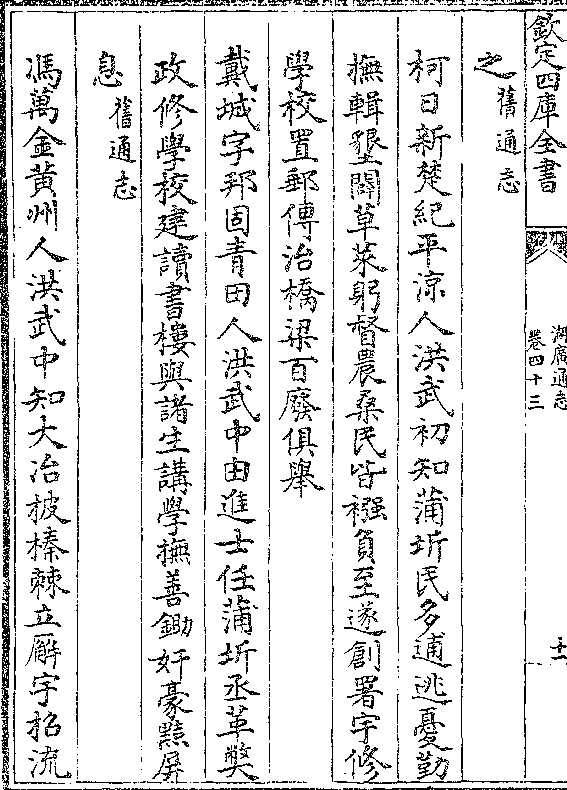 欽定四庫全書
湖廣通志
卷四十三
十一
之舊通志
柯日新楚紀平涼人洪武初知蒲圻民多逋逃憂勤
撫輯墾闢草萊躬督農桑民皆襁負至遂創署宇修
學校置郵傳治橋梁百廢俱舉
戴城字邦固青田人洪武中由進士任蒲圻丞革獘
政修學校建讀書樓與諸生講學撫善鋤奸豪黠屏
息舊通志
馮萬金黃州人洪武中知大冶披榛棘立廨宇招流